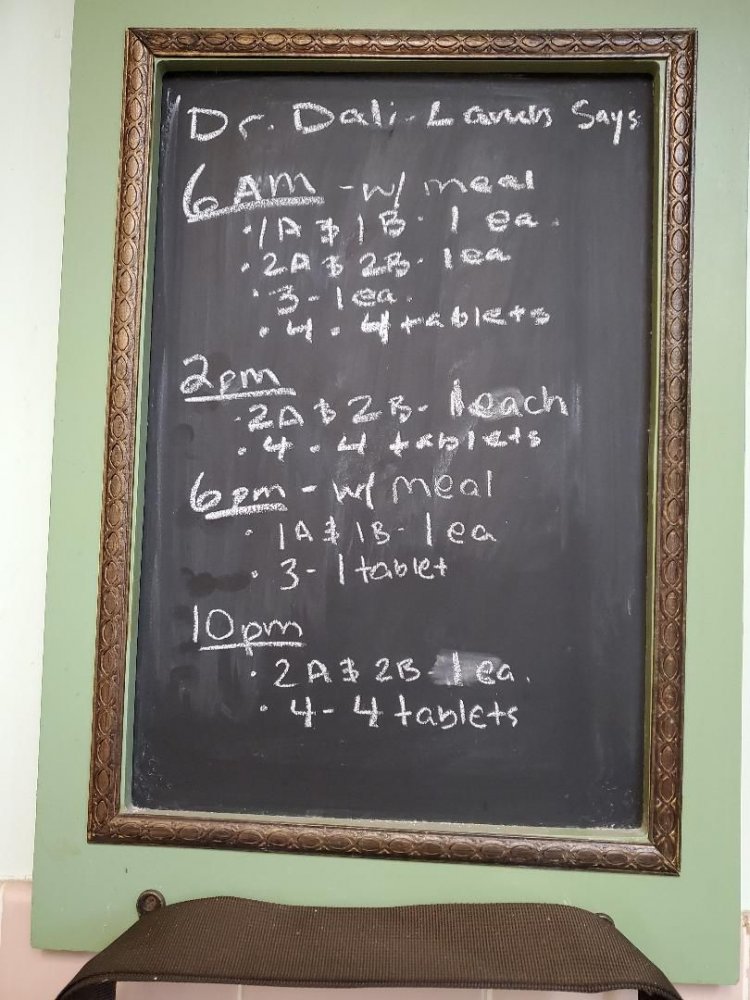 Dr. Dali- Says
6AM - w/ meal
· 1A & 1B · 1 ea.
· 2A & 2B · 1 ea
· 3 - 1 ea.
· 4 · 4 tablets
2pm
· 2A & 2B - 1 each
· 4 · 4 tablets
6pm - w/ meal
· 1A & 1B - 1 ea
· 3 - 1 tablet
10pm
· 2A & 2B 1 ea.
· 4 - 4 tablets